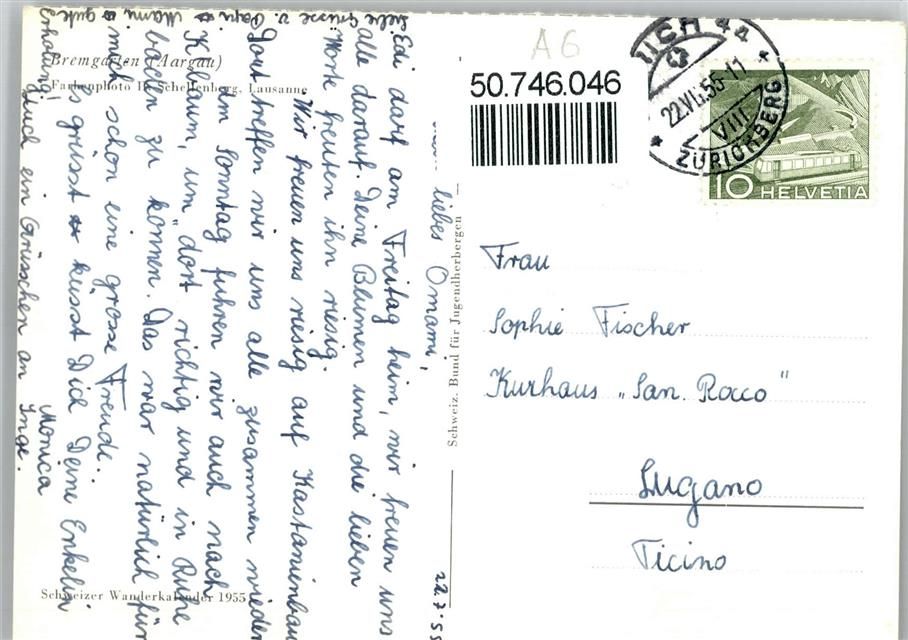 22.7.55
liebes Omami,
Edi darf am Freitag heim, wir freuen uns
alle darauf. Deine Blumen und die lieben
Worte freuten ihn riesig.
Wir freuen uns riesig auf Kastanienbau
Dort treffen wir uns alle zusammen wieder
Am Sonntag fuhren wir auch nach
K'baum, um dort richtig und in Ruhe
baden zu können. Das war natürlich für
mich schon eine grosse Freude.
Es grüsst + küsst Dich Deine Enkelin
Monica
Auch ein Grüsschen an Inge.
Liebe Grüsse v. Papi + Mami, + gute
Erholung!
Bremgarten (Aargau)
Farbenphoto H. Schellenberg, Lausanne
Schweizer Wanderkalender 1955
Schweiz. Bund für Jugendherbergen
A6
50.746.046
UCH 44
22.VII.55-11
VIII
ZÜRICHBERG
10 HELVETIA
Frau
Sophie Fischer
Kurhaus „San. Rocco"
Lugano
Ticino